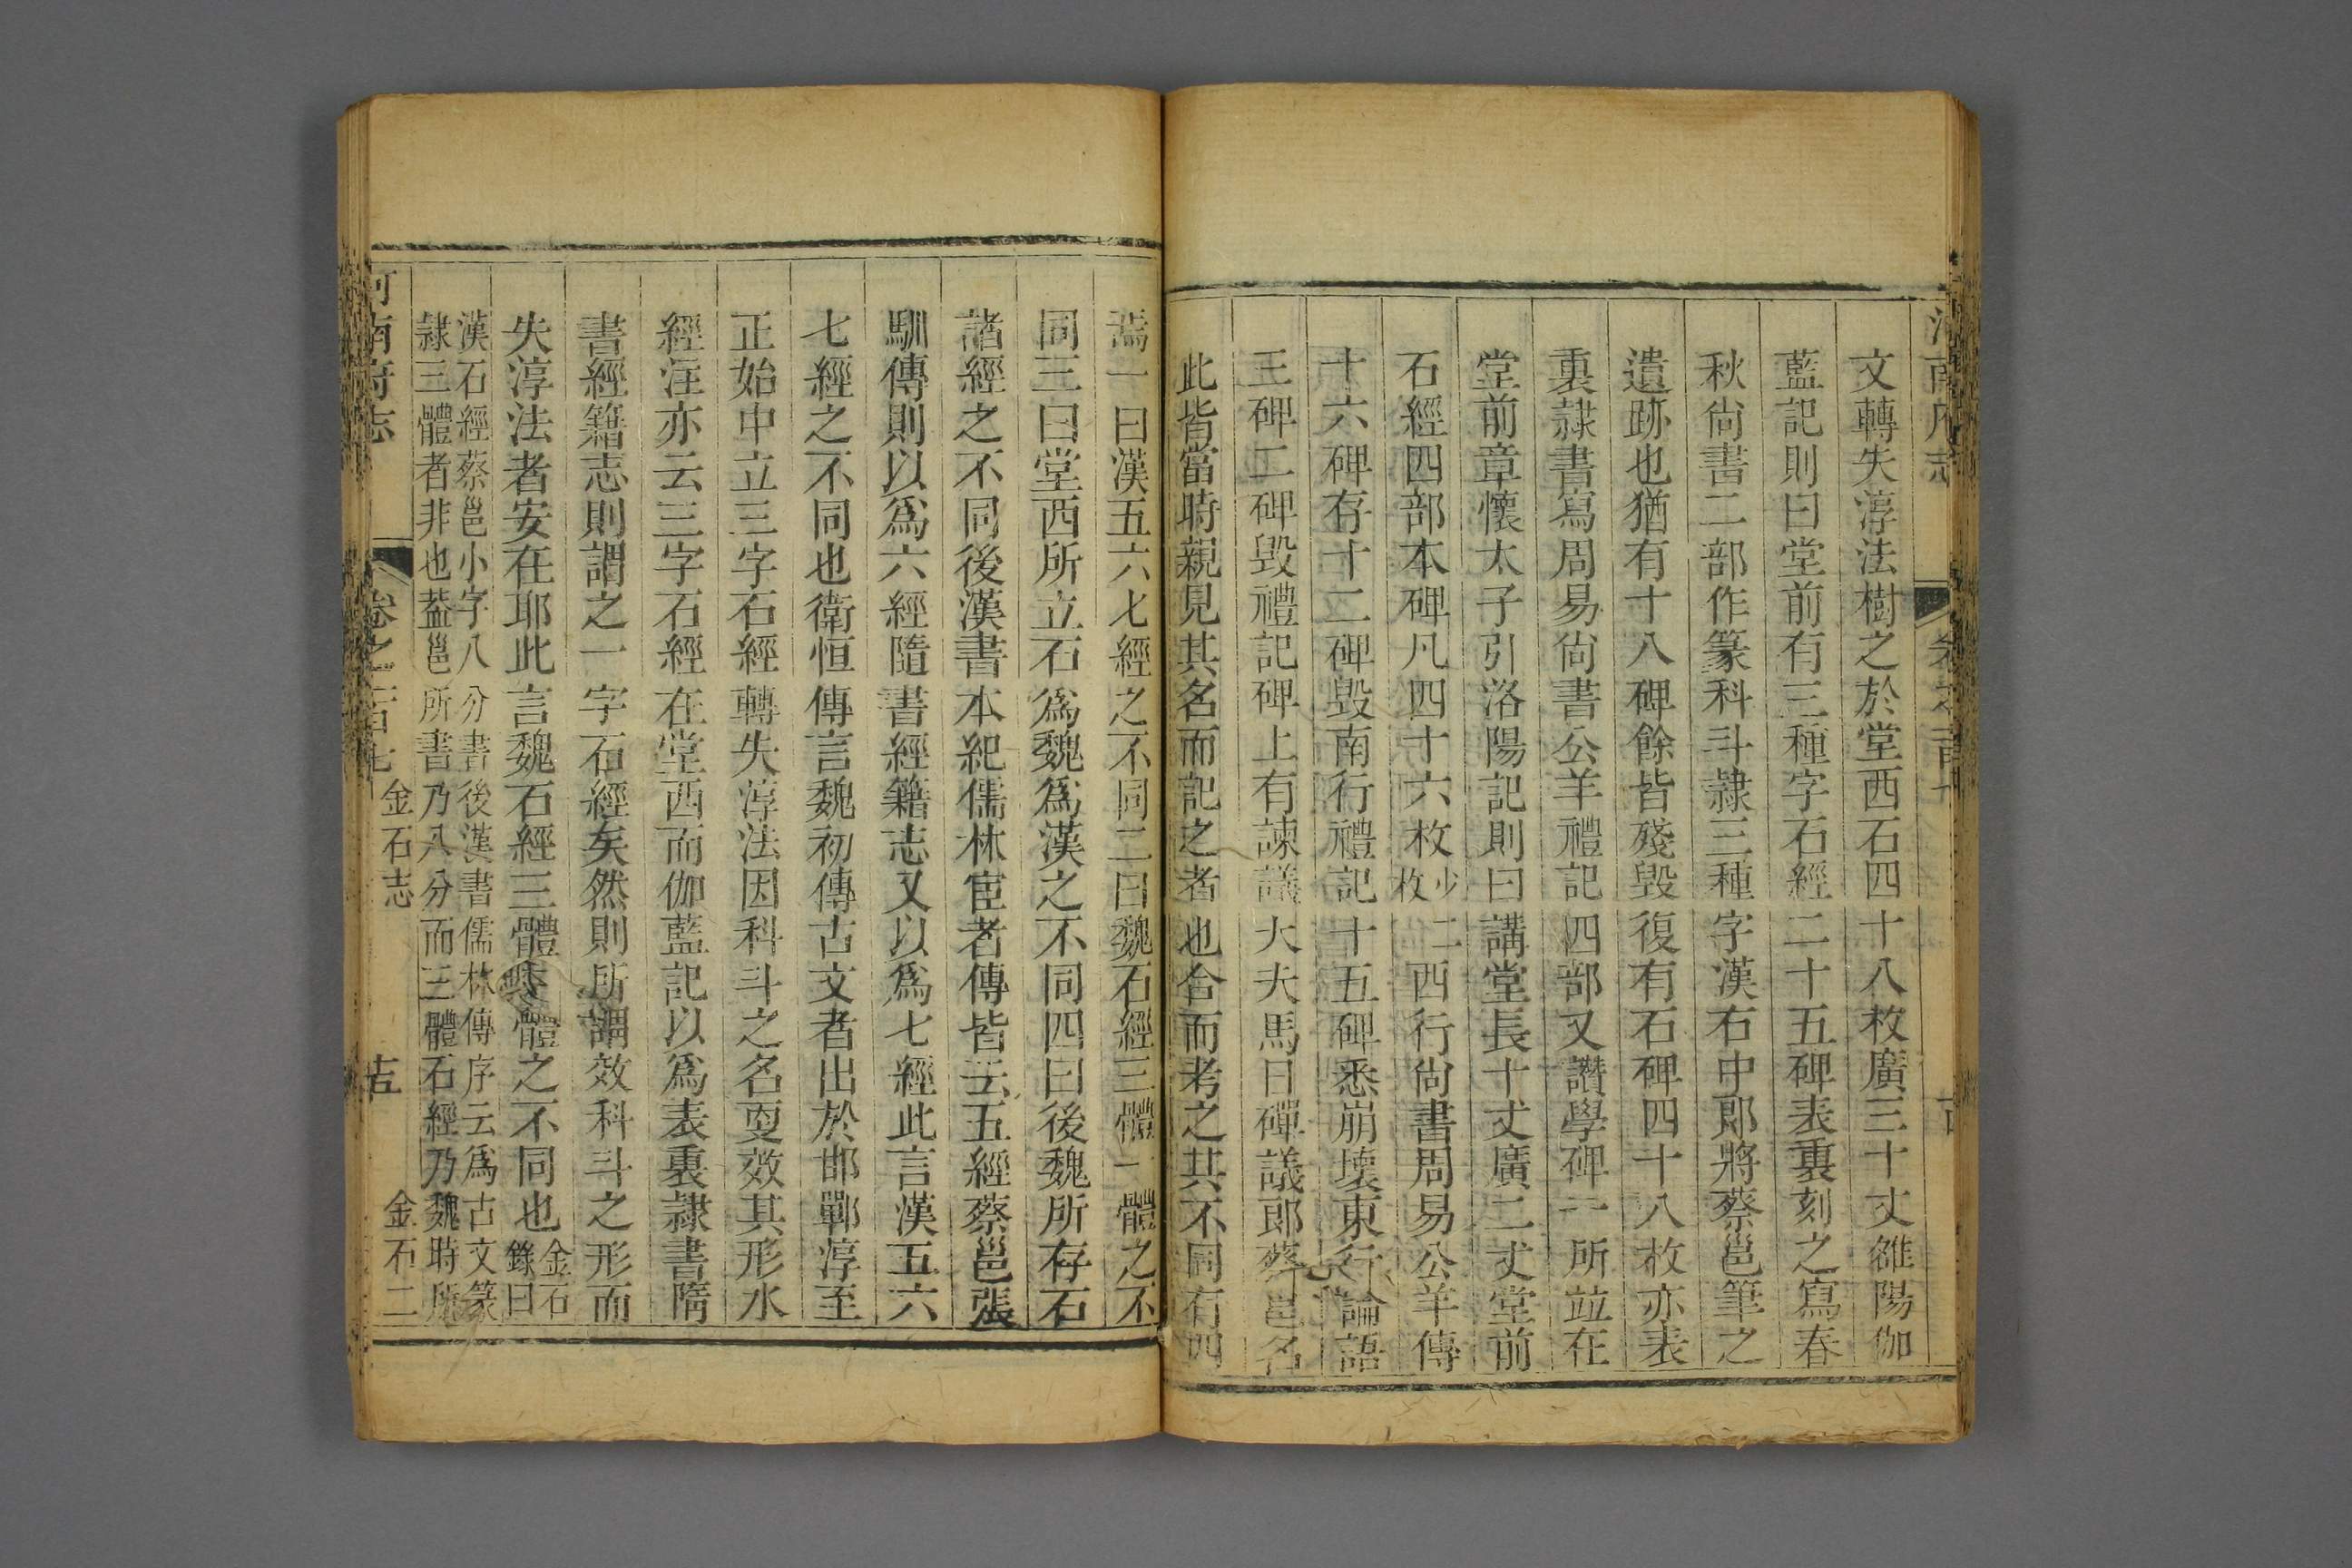 文轉失淳法樹之於堂西石四十八枚廣三十丈雒陽伽
藍記則曰堂前有三種字石經二十五碑表裏刻之寫春
秋尚書二部作篆科斗隸三種字漢右中郎將蔡邕筆之
遺跡也猶有十八碑餘皆殘毀復有石碑四十八枚亦表
裏隸書寫周易尚書公羊禮記四部又讚學碑一所竝在
堂前章懷太子引洛陽記則曰講堂長十丈廣二丈堂前
石經四部本碑凡四十六枚少二枚西行尚書周易公羊傳
十六碑存十二碑毀南行禮記十五碑悉崩壞東行論語
三碑二碑毀禮記碑上有諫議大夫馬日磾議郎蔡邕名
此皆當時親見其名而記之者也合而考之其不同有四
焉一曰漢五六七經之不同二曰魏石經三體一體之不
同三曰堂西所立石為魏為漢之不同四曰後魏所存石
諸經之不同後漢書本紀儒林宦者傳皆云五經蔡邕張
馴傳則以爲六經隨書經籍志又以爲七經此言漢五六
七經之不同也衛恒傳言魏初傳古文者出於邯鄲淳至
正始中立三字石經轉失淳法因科斗之名更效其形水
經注亦云三字石經在堂西而伽藍記以爲表裏隸書隋
書經籍志則謂之一字石經矣然則所謂效科斗之形而
失淳法者安在耶此言魏石經三體一體之不同也金石
錄曰
漢石經蔡邕小字八分書後漢書儒林傳序云爲古文篆
隸三體者非也葢邕所書乃八分而三體石經乃魏時所
河南府志 卷之一百七 金石志 十五 金石二